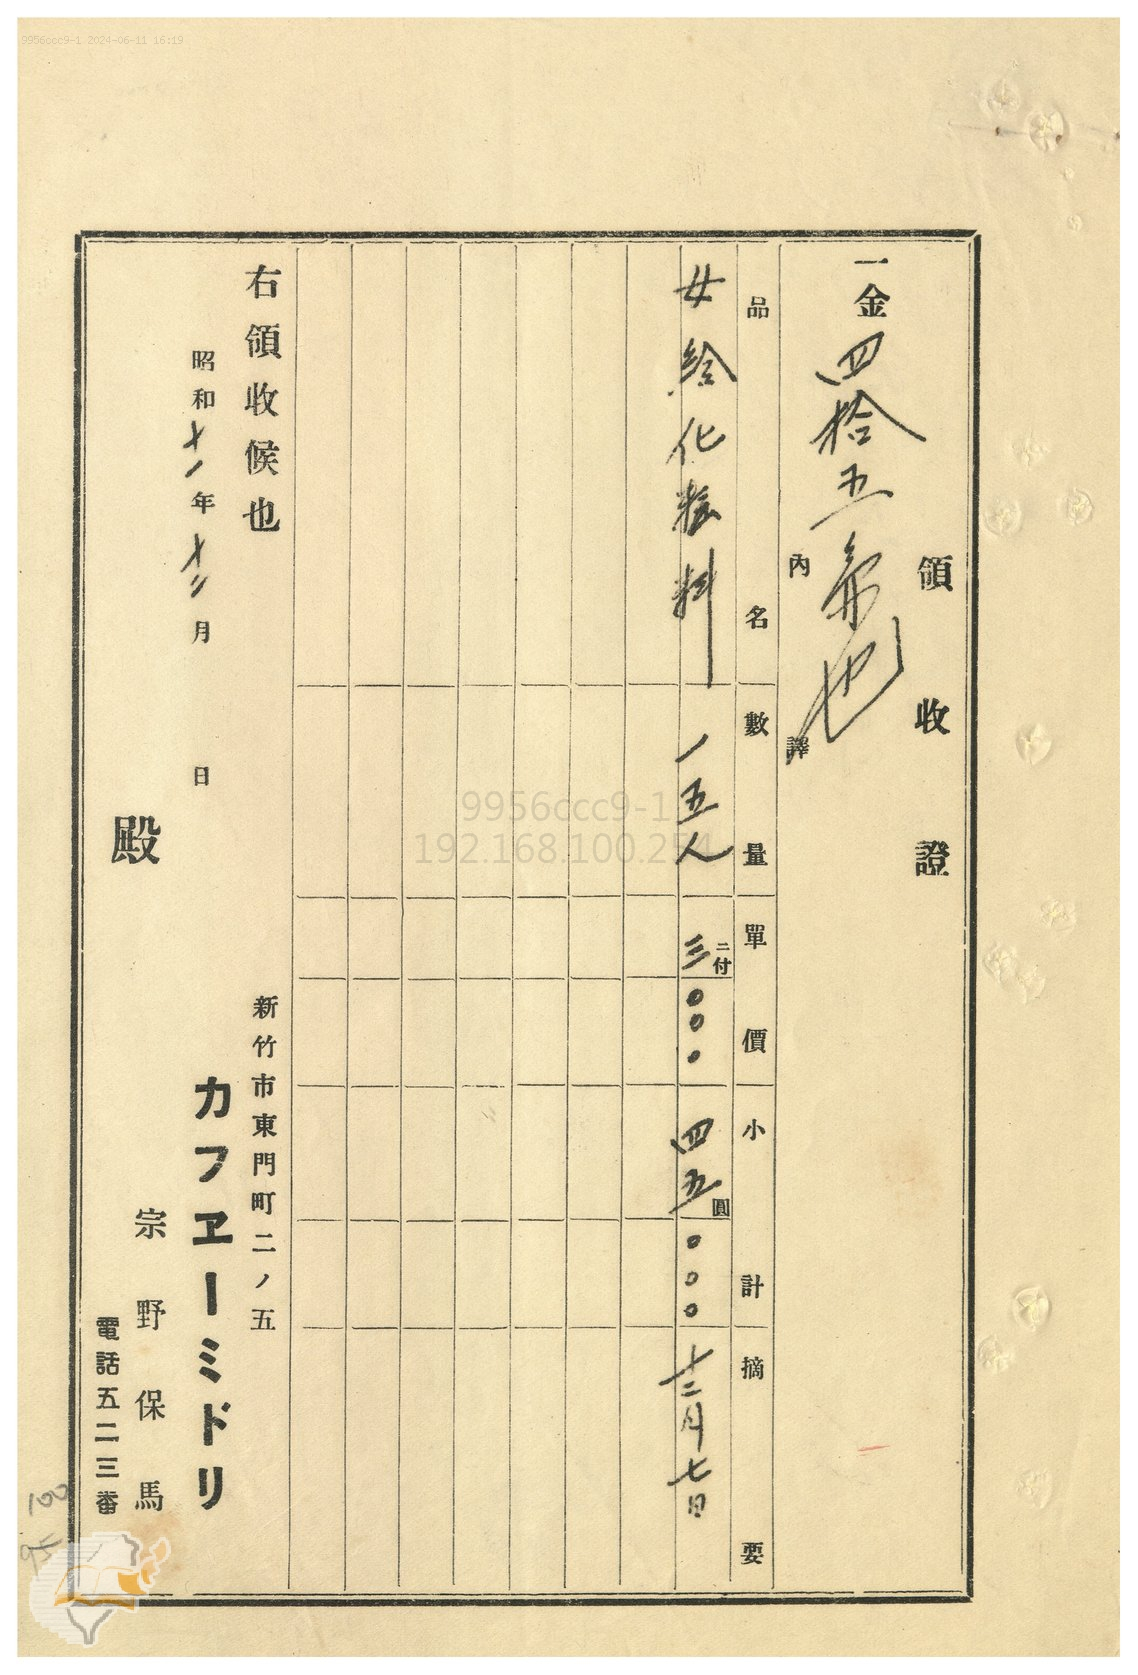 9956ccc9-1 2024-06-11 16:19
領收證
一金四拾五円也
內譯
品名 數量 單價 小計 摘要
女給化粧料 一五人 二付 三〇〇〇 四五圓〇〇〇 十二月七日
右領收候也
昭和十一年十二月 日
新竹市東門町二ノ五
カフヱーミドリ
宗野保馬
電話五二三番
殿
9956ccc9-1
192.168.100.254
100